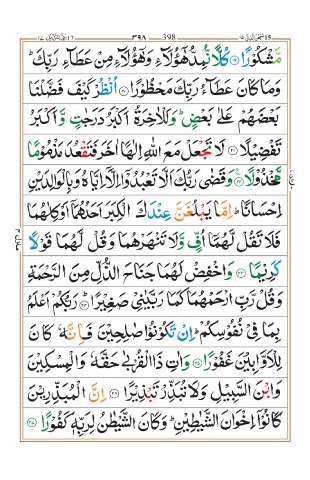 بنی اسرآءیل ۱۷ ۳۹۸ 398 سبحٰن الذی ۱۵
مَّشْكُوْرًا ۝۱۹ كُلًّا نُّمِدُّ هٰۤؤُلَآءِ وَهٰۤؤُلَآءِ مِنْ عَطَآءِ رَبِّكَ ؕ
وَمَا كَانَ عَطَآءُ رَبِّكَ مَحْظُوْرًا ۝۲۰ اُنْظُرْ كَيْفَ فَضَّلْنَا
بَعْضَهُمْ عَلٰى بَعْضٍ ؕ وَلَلْاٰخِرَةُ اَكْبَرُ دَرَجٰتٍ وَّاَكْبَرُ
تَفْضِيْلًا ۝۲۱ لَا تَجْعَلْ مَعَ اللّٰهِ اِلٰهًا اٰخَرَ فَتَقْعُدَ مَذْمُوْمًا
مَّخْذُوْلًا ۝۲۲ وَقَضٰى رَبُّكَ اَلَّا تَعْبُدُوْۤا اِلَّاۤ اِيَّاهُ وَبِالْوَالِدَيْنِ
اِحْسَانًا ؕ اِمَّا يَبْلُغَنَّ عِنْدَكَ الْكِبَرَ اَحَدُهُمَاۤ اَوْ كِلٰهُمَا
فَلَا تَقُلْ لَّهُمَاۤ اُفٍّ وَّلَا تَنْهَرْهُمَا وَقُلْ لَّهُمَا قَوْلًا
كَرِيْمًا ۝۲۳ وَاخْفِضْ لَهُمَا جَنَاحَ الذُّلِّ مِنَ الرَّحْمَةِ
وَقُلْ رَّبِّ ارْحَمْهُمَا كَمَا رَبَّيٰنِيْ صَغِيْرًا ۝۲۴ رَبُّكُمْ اَعْلَمُ
بِمَا فِيْ نُفُوْسِكُمْ ؕ اِنْ تَكُوْنُوْا صٰلِحِيْنَ فَاِنَّهٗ كَانَ
لِلْاَوَّابِيْنَ غَفُوْرًا ۝۲۵ وَاٰتِ ذَا الْقُرْبٰى حَقَّهٗ وَالْمِسْكِيْنَ
وَابْنَ السَّبِيْلِ وَلَا تُبَذِّرْ تَبْذِيْرًا ۝۲۶ اِنَّ الْمُبَذِّرِيْنَ
كَانُوْۤا اِخْوَانَ الشَّيٰطِيْنِ ؕ وَكَانَ الشَّيْطٰنُ لِرَبِّهٖ كَفُوْرًا ۝۲۷